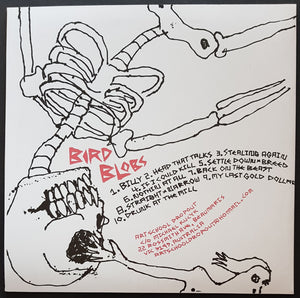 BIRD
BLOBS
1. BILLY 2. HEAD THAT TALKS 3. STEALING AGAIN
4. IF I COULD KILL 5. SETTLE DOWN + BREED
6. NOTHIN AT ALL 7. BACK ON THE BEAST
8. STRAIGHT + NARROW 9. MY LAST GOLD DOLLAR
10. DRUNK AT THE MILL
ART SCHOOL DROPOUT
C/O MICHAEL
AVE, BEAUMARIS
VIC 3193, AUSTRALIA
ARTSCHOOLDROPOUT@HOTMAIL.COM